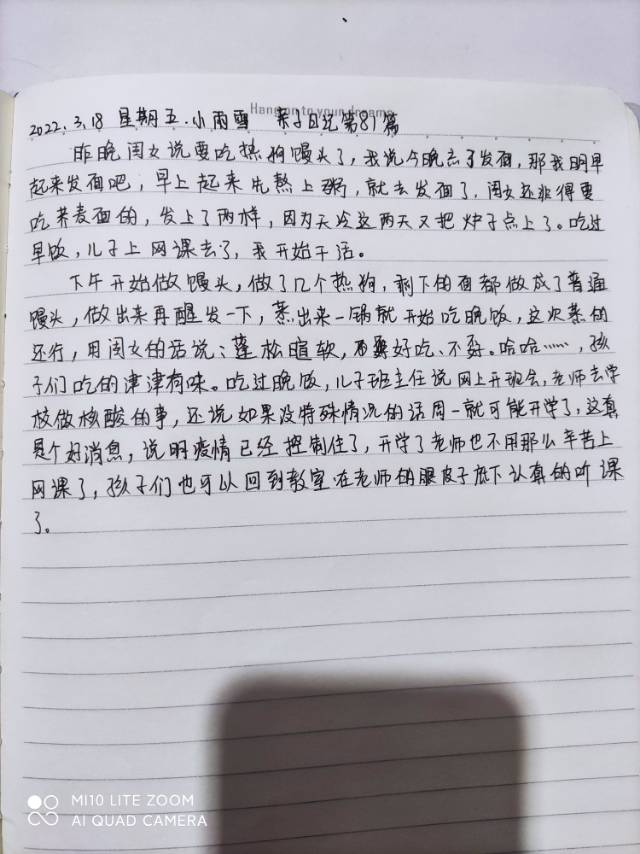 Hang on to your dreams
2022.3.18 星期五.小雨雪 亲子日记第81篇
昨晚闺女说要吃热狗馒头了，我说今晚忘了发面，那我明早
起来发面吧，早上起来先熬上粥，就去发面了，闺女还非得要
吃荞麦面的，发上了两样，因为天冷这两天又把炉子点上了。吃过
早饭，儿子上网课去了，我开始干活。
下午开始做馒头，做了几个热狗，剩下的面都做成了普通
馒头，做出来再醒发一下，蒸出来一锅就开始吃晚饭，这次蒸的
还行，用闺女的话说：蓬松暄软，好吃、不孬。哈哈……，孩
子们吃的津津有味。吃过晚饭，儿子班主任说网上开班会，老师去学
校做核酸的事，还说如果没特殊情况的话周一就可能开学了，这真
是个好消息，说明疫情已经控制住了，开学了老师也不用那么辛苦上
网课了，孩子们也可以回到教室在老师的眼皮子底下认真的听课
了。
MI10 LITE ZOOM
AI QUAD CAMERA